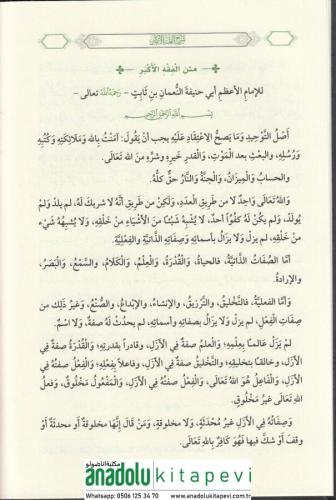 شرح الفقه الأكبر
متن الفقه الأكبر
للإمام الأعظم أبي حنيفة النُّعمان بنِ ثَابِتٍ - رَحِمَهُ اللهُ تعالى -
بِسْمِ اللَّهِ الرَّحْمَنِ الرَّحِيمِ
أَصْلُ التَّوْحِيدِ وَمَا يَصِحُّ الاعْتِقَادُ عَلَيْهِ يجب أنْ يَقُولَ: آمَنْتُ بِاللهِ وَمَلَائِكَتِهِ وَكُتُبِهِ
وَرُسُلِهِ، والبعثِ بعدَ المَوْتِ، والقَدَرِ خَيرِهِ وشرِّهِ مِنَ اللهِ تَعَالَى.
والحسابُ والمِيزَانُ، والجنَّةُ والنَّارُ حقٌّ كلُّهُ.
وَاللهُ تَعَالَى وَاحِدٌ لا مِن طَرِيقِ العددِ، وَلَكِنْ مِن طَرِيقِ أنَّهُ لا شريكَ لَهُ، لم يلدْ وَلمْ
يُولَدْ، وَلم يكنْ لَهُ كفُوًا أحدٌ، لا يُشْبِهُ شَيْئًا مِنَ الأَشْيَاءِ مِنْ خَلْقِهِ، وَلَا يُشْبِهُهُ شَيْء
مِنْ خَلْقِهِ، لم يزلْ وَلَا يزَالُ بأسمائِهِ وَصِفَاتِهِ الذَّاتِيَّةِ والفِعْلِيَّةِ.
أمَّا الصِّفَاتُ الذَّاتِيَّةُ، فالحياةُ، والقُدْرَةُ، والعِلْمُ، والكَلَامُ، والسَّمْعُ، وَالْبَصَرُ،
والإرادةُ.
وَأمَّا الفعليَّةُ، فالتَّخْلِيقُ، والتَّرْزِيقُ، والإنشاءُ، والإبْدَاعُ، والصُّنْعُ، وَغيرُ ذَلِك من
صِفَاتِ الفِعْلِ، لم يزلْ وَلَا يزَالُ بصفاتِهِ وأسمائِهِ، لم يحدُثْ لَهُ صفةٌ، وَلَا اسْمٌ.
لمْ يَزَلْ عَالمًا بِعِلْمِهِ، والعلمُ صفةٌ فِي الأَزَلِ، وقادرًا بقدرتِهِ؛ والقُدْرَةُ صفةٌ فِي
الأَزَلِ، وخالقًا بتخليقِهِ؛ والتَّخْلِيقُ صفةٌ فِي الأَزَلِ، وفاعلًا بِفِعْلِهِ؛ والفِعْلُ صفتُهُ فِي
الأَزَلِ، والفَاعِلُ هُوَ اللهُ تَعَالَى، والفِعْلُ صفتُهُ فِي الأَزَلِ، والمَفْعُولُ مَخْلُوقٌ، وَفعلُ
اللهِ تَعَالَى غيرُ مَخْلُوقٍ.
وَصِفَاتُهُ فِي الأَزَلِ غيرُ مُحْدَثَةٍ، وَلَا مخلوقةٍ، وَمَنْ قَالَ إنَّها مخلوقةٌ أو محدثةٌ أوْ
وقفَ أوْ شكَّ فيها فَهُوَ كَافِرٌ بِاللهِ تَعَالَى.
مكتبة اناضولو
anadolukitapevi
Whatsapp: 0506 125 34 70 www.anadolukitapevi.com.tr